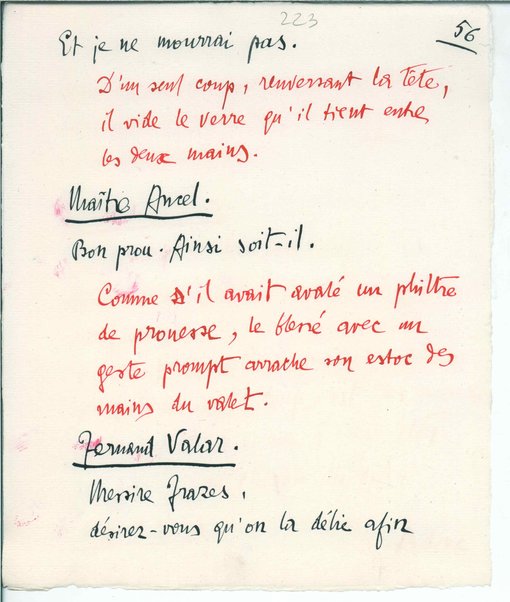 223
56
Et je ne mourrai pas.
D'un seul coup, renversant la tête,
il vide le verre qu'il tient entre
les deux mains.
Maître Ancel.
Bon prou. Ainsi soit-il.
Comme s'il avait avalé un philtre
de prouesse, le blessé avec un
geste prompt arrache son estoc des
mains du valet.
Fernand Valar.
Messire Frazes,
désirez-vous qu'on la délie afin